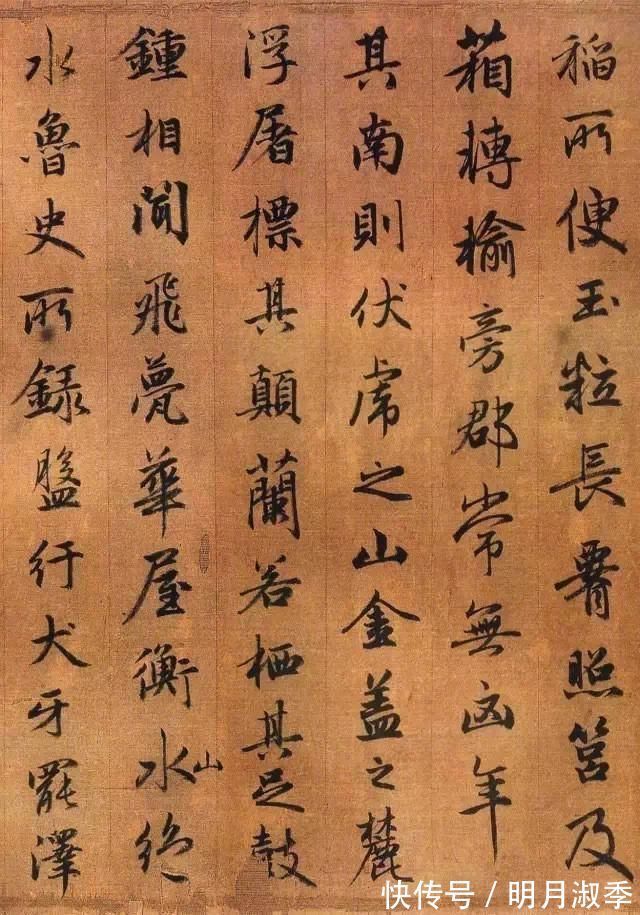 稻所便玉粒長腰照筥及
箱轉輸旁郡常無凶年
其南則伏虎之山金盖之麓
浮屠標其顛蘭若栖其足鼓
鍾相聞飛甍華屋衡水山絕
水魯史所錄盤紆犬牙罷澤
快传号 / 明月淑季